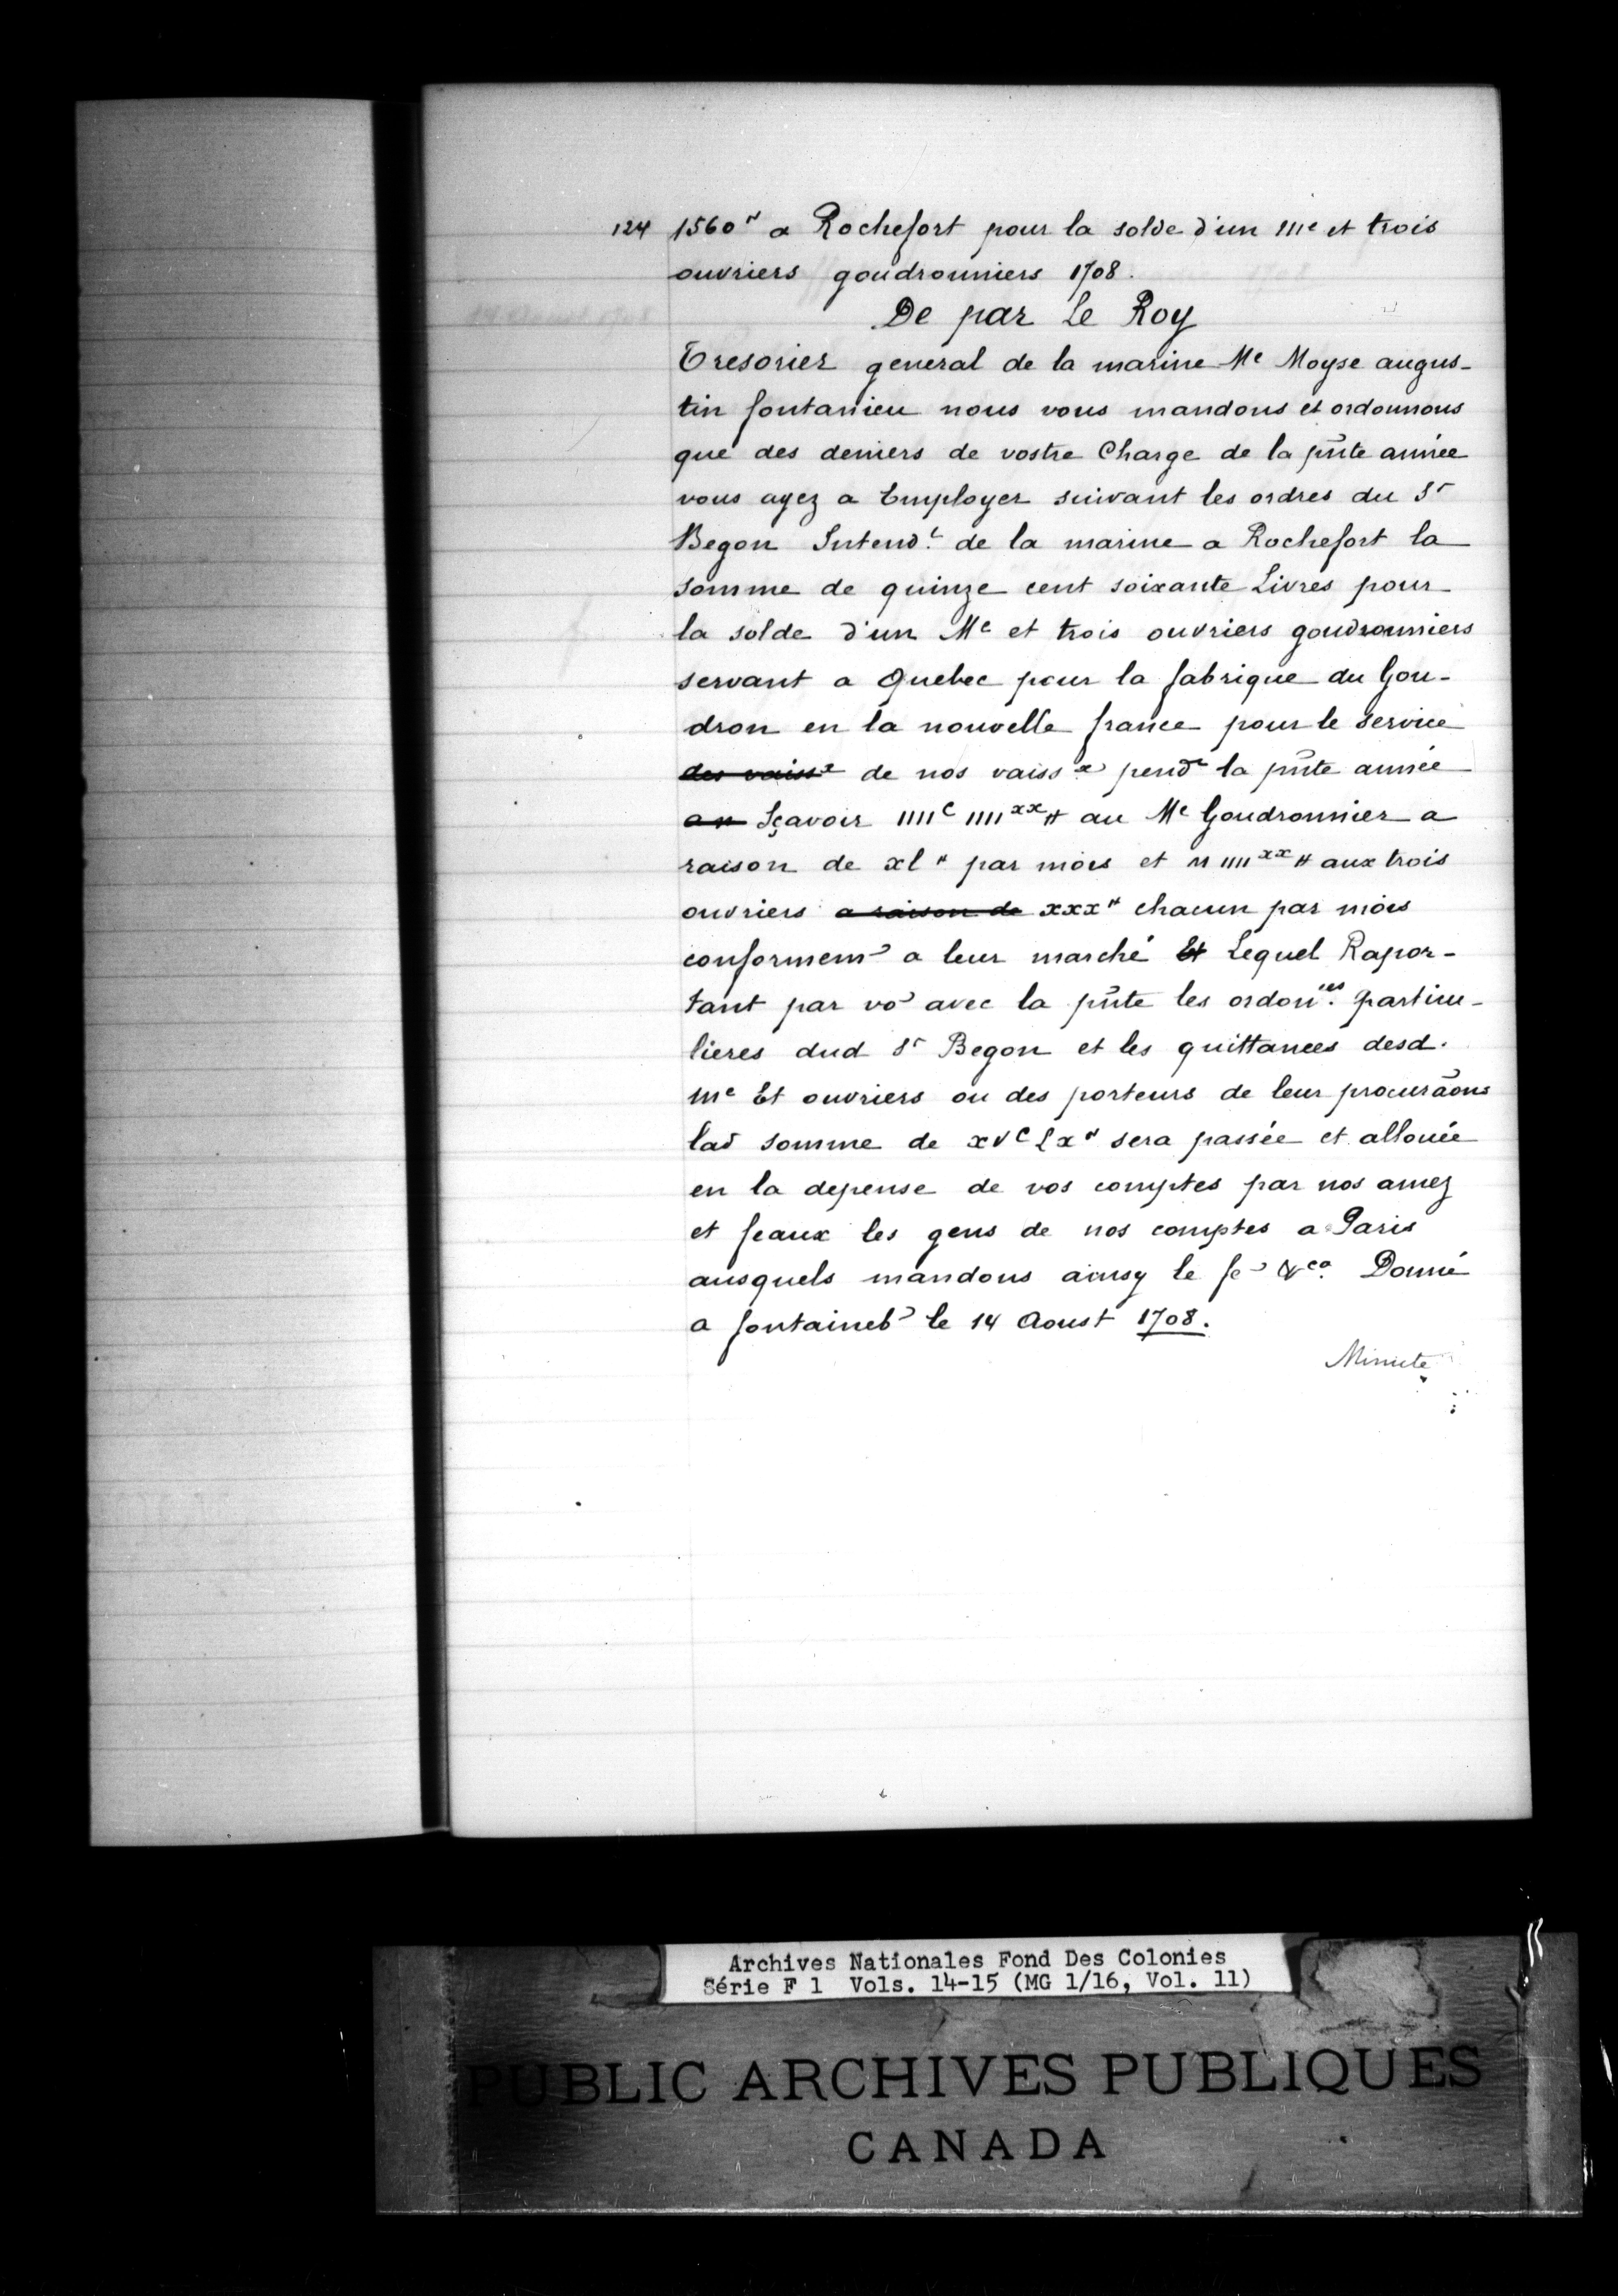 124 1560ᴴ a Rochefort pour la solde d'un Mᵉ et trois
ouvriers goudronniers 1708.
De par Le Roy
Tresorier general de la marine Mᵉ Moyse augus-
tin fontanieu nous vous mandons et ordonnons
que des deniers de vostre Charge de la pñte année
vous ayez a Employer suivant les ordres du Sʳ
Begon Intendᵗ. de la marine a Rochefort la
somme de quinze cent soixante Livres pour
la solde d'un Mᵉ et trois ouvriers goudronniers
servant a Quebec pour la fabrique du Gou-
dron en la nouvelle france pour le service
des vaissˣ de nos vaissˣ pendᵗ la pñte année
an Sçavoir IIIIᶜ IIIIˣˣ ᴴ au Mᵉ Goudronnier a
raison de xl ᴴ par mois et IIIIˣˣ ᴴ aux trois
ouvriers a raison de xxxᴴ chacun par mois
conformem̃ a leur marché Et Lequel Rapor-
tant par vo avec la pñte les ordonᶜᵉˢ. particu-
lieres dud Sʳ Begon et les quittances desd.
Mᵉ Et ouvriers ou des porteurs de leur procurãons
lad somme de xvᶜLxᴴ sera passée et allouée
en la depense de vos comptes par nos amez
et feaux les gens de nos comptes a Paris
ausquels mandons ainsy le fe &cᵃ. Donné
a fontaineb le 14 Aoust 1708.
Minute
Archives Nationales Fond Des Colonies
Série F 1 Vols. 14-15 (MG 1/16, Vol. 11)
PUBLIC ARCHIVES PUBLIQUES
CANADA